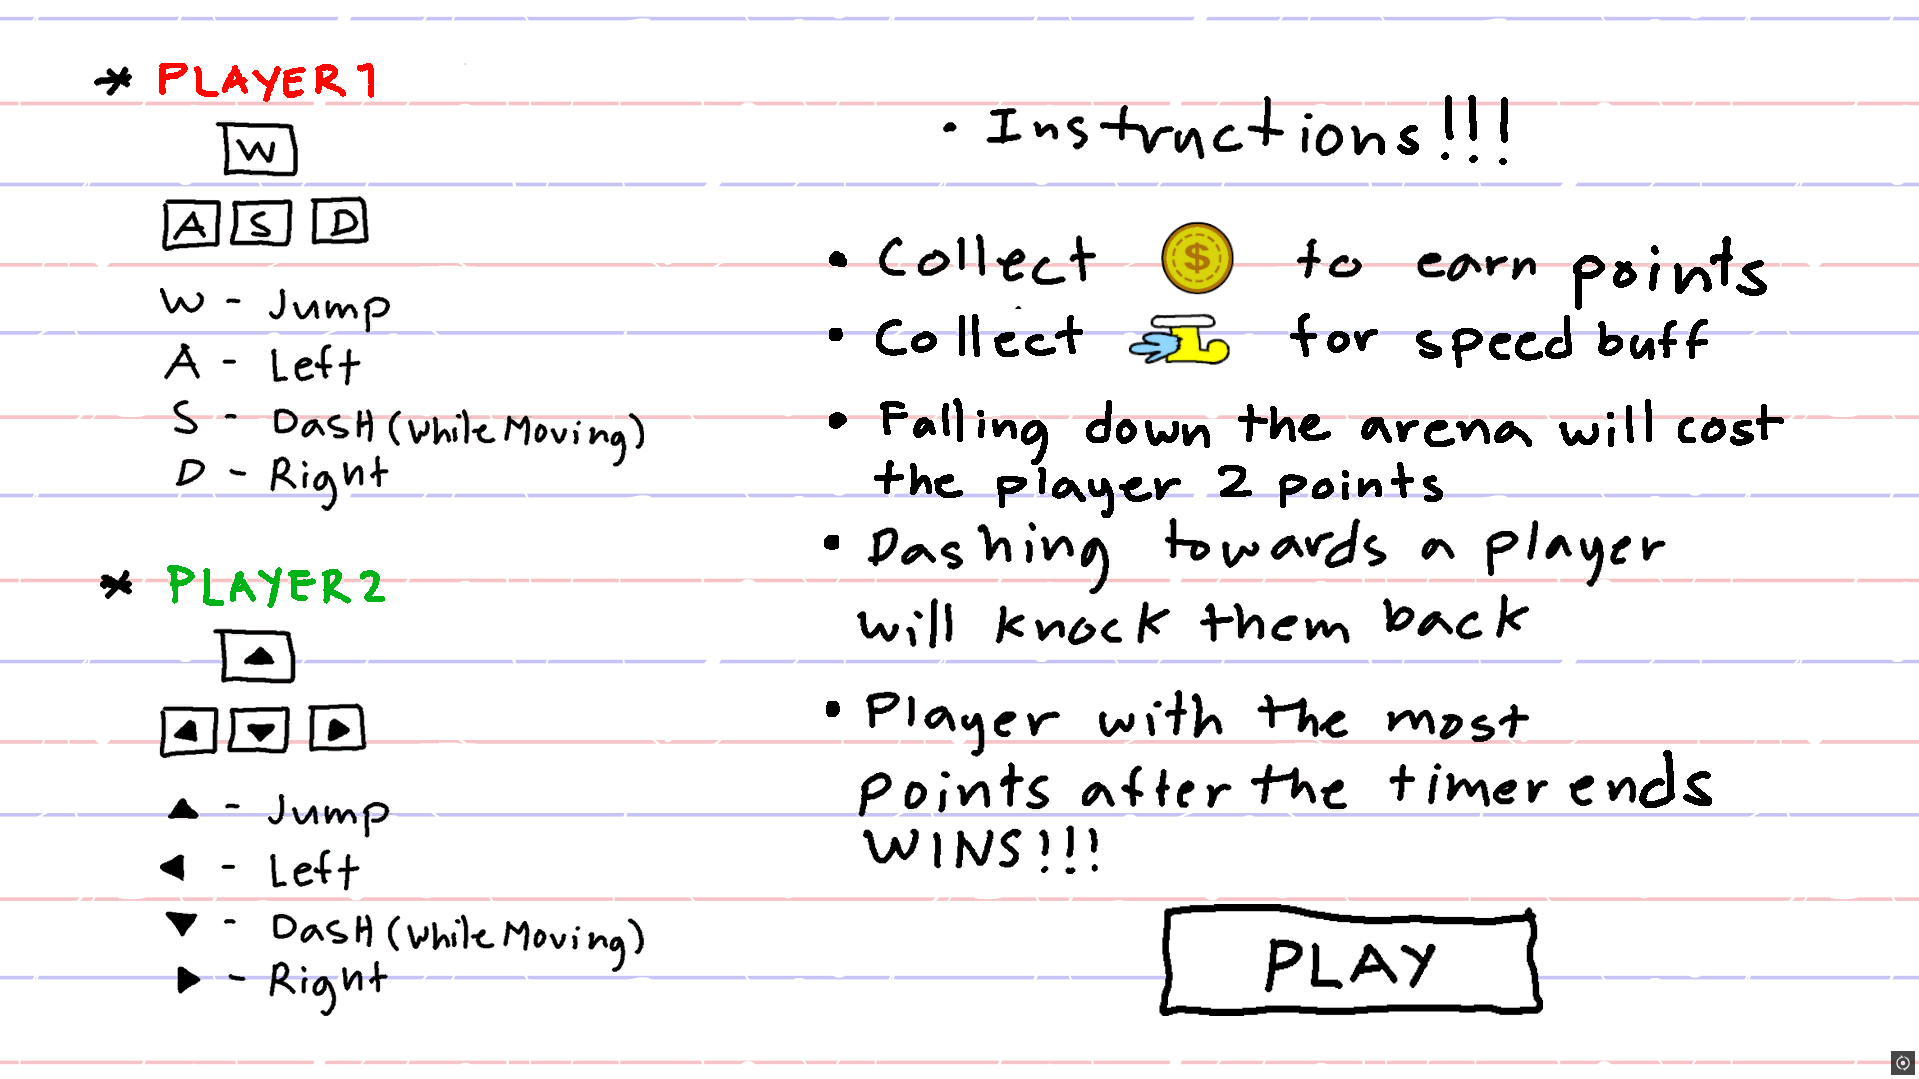 * PLAYER 1
W
A S D
W - Jump
A - Left
S - DasH (while Moving)
D - Right
* PLAYER 2
▲
◀ ▼ ▶
▲ - Jump
◀ - Left
▼ - DasH (while Moving)
▶ - Right
• Instructions!!!
• Collect $ to earn points
• Collect for speed buff
• Falling down the arena will cost
the player 2 points
• Dashing towards a player
will knock them back
• Player with the most
points after the timer ends
WINS!!!
PLAY